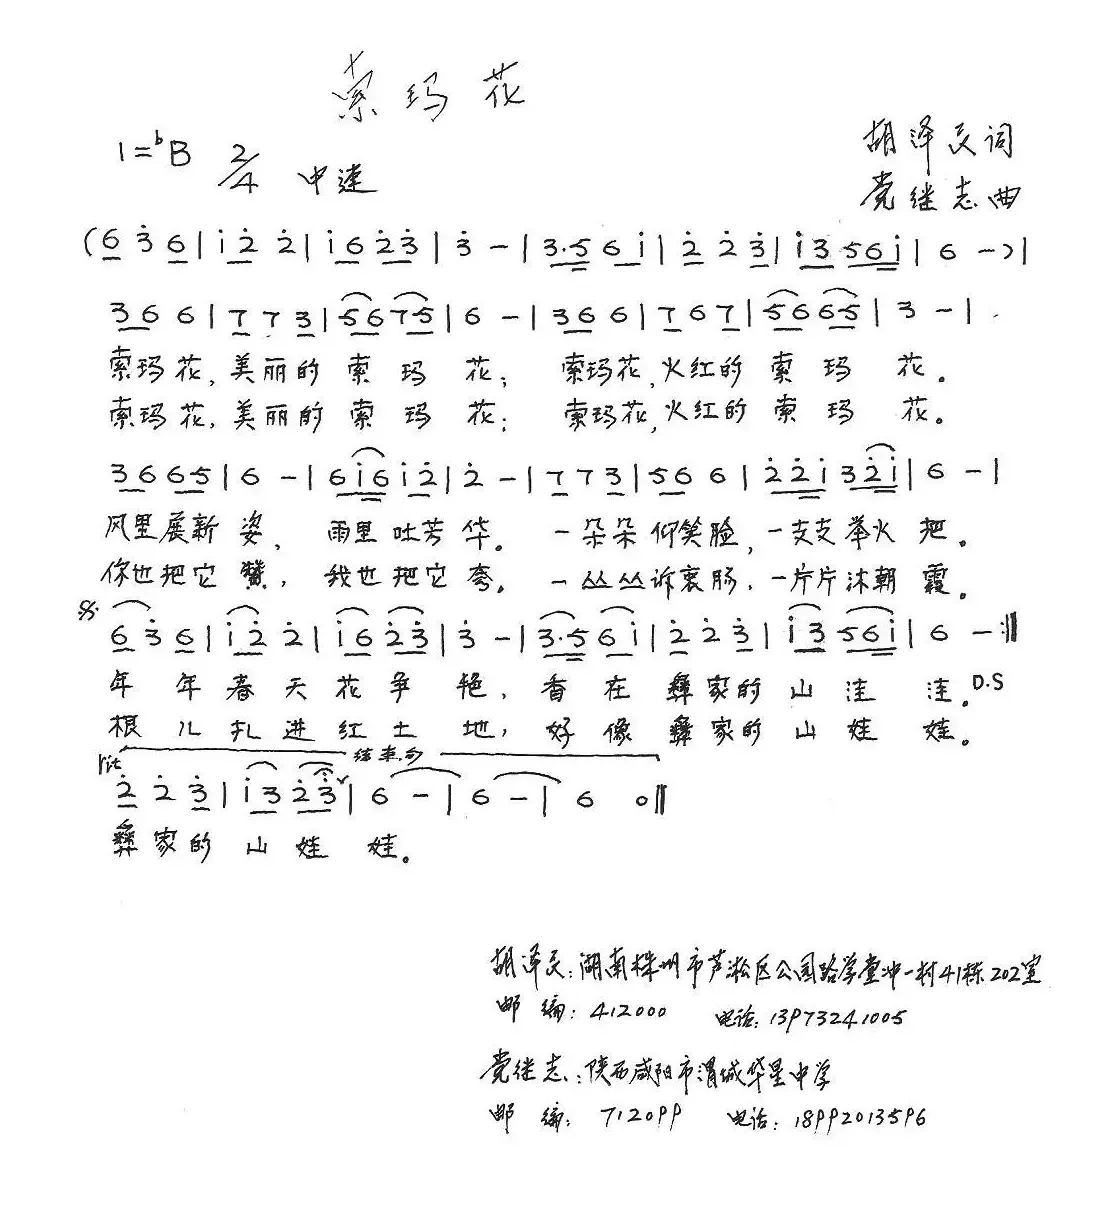 索玛花
1=♭B 2/4 中速
胡泽民词
党继志曲
(6 3̇ 6 | i 2̇ 2̇ | i 6 2̇ 3̇ | 3̇ - | 3·5 6 i | 2̇ 2̇ 3̇ | i 3 5 6 i | 6 - ) |
3 6 6 | 7 7 3 | 5 6 7 5 | 6 - | 3 6 6 | 7 6 7 | 5 6 6 5 | 3 - |
索玛花,美丽的索玛花; 索玛花,火红的索玛花。
索玛花,美丽的索玛花; 索玛花,火红的索玛花。
3 6 6 5 | 6 - | 6 i 6 i 2̇ | 2̇ - | 7 7 3 | 5 6 6 | 2̇ 2̇ i 3 2̇ i | 6 - |
风里展新姿, 雨里吐芳华。 一朵朵仰笑脸,一支支举火把。
你也把它赞, 我也把它夸。 一丛丛诉衷肠,一片片沐朝霞。
𝄋 6 3̇ 6 | i 2̇ 2̇ | i 6 2̇ 3̇ | 3̇ - | 3·5 6 i | 2̇ 2̇ 3̇ | i 3 5 6 i | 6 - :||
年年春天花争艳,香在彝家的山洼洼。D.S
根儿扎进红土地,好像彝家的山娃娃。
rit 结束句
2̇ 2̇ 3̇ | i 3 2̇ 3̇ ˅ | 6 - | 6 - | 6 0 ||
彝家的山娃娃。
胡泽民:湖南株州市芦淞区公园路学堂冲一村41栋202室
邮编:412000 电话:13973241005
党继志:陕西咸阳市渭城华星中学
邮编:712099 电话:18992013596